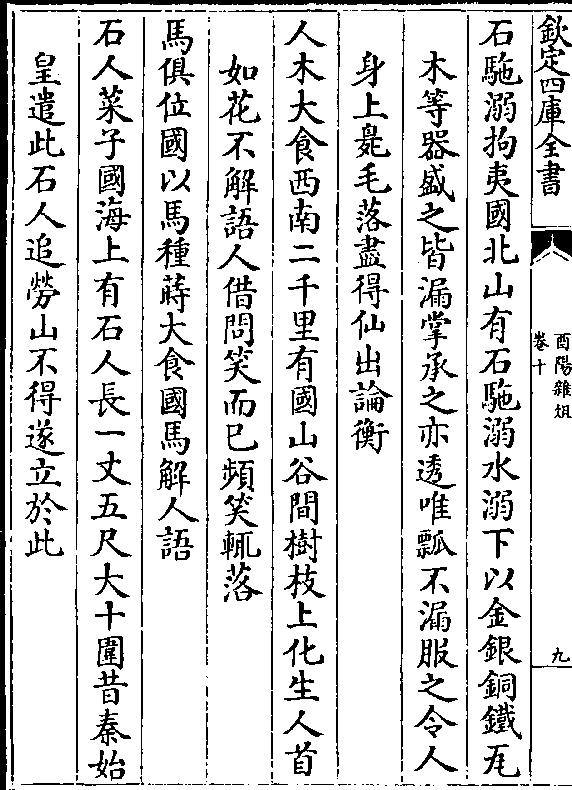 欽定四庫全書
酉陽雜俎
卷十
九
石駞溺拘夷國北山有石駞溺水溺下以金銀銅鐵瓦
木等器盛之皆漏掌承之亦透唯瓢不漏服之令人
身上臰毛落盡得仙出論衡
人木大食西南二千里有國山谷間樹枝上化生人首
如花不解語人借問笑而已頻笑輒落
馬俱位國以馬種蒔大食國馬解人語
石人菜子國海上有石人長一丈五尺大十圍昔秦始
皇遣此石人追勞山不得遂立於此